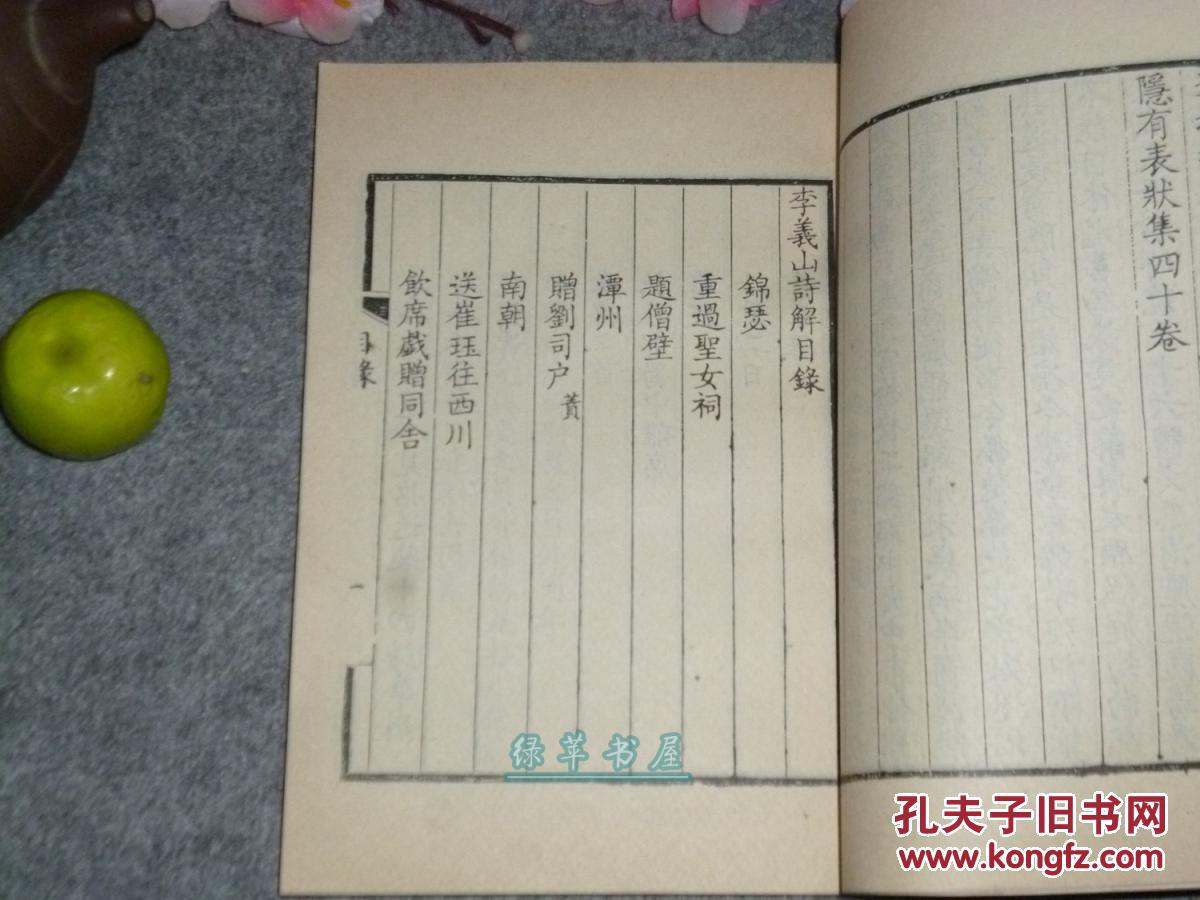 隱有表狀集四十卷
李義山詩解目錄
錦瑟
重過聖女祠
題僧壁
潭州
贈劉司户 蕡
南朝
送崔珏往西川
飲席戲贈同舍
目錄
一
绿苹书屋
孔夫子旧书网
www.kongfz.com